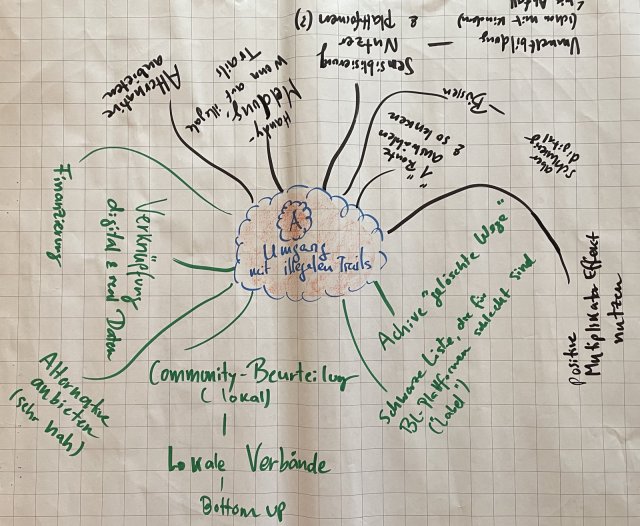 A
Umgang
mit illegalen Trails
Alternative
anbieten
Handy-
Meldung
wenn auf illegale
Trails
Sensibilisierung
Nutzer
& Plattformen (?)
Umweltbildung
(schon mit Kindern)
Abfall
Büssen
"1 Route
auswählen
& so lenken
aber
schwierig
digital
Positive
Multiplikator Effekt
nutzen
Achive "gelöschte Wege"
Schwarze Liste, die für
BL-Plattformen schlecht sind
("Label")
Community-Beurteilung
(lokal)
Lokale Verbände
Bottom up
Alternative
anbieten
(sehr nah)
Verknüpfung
digital & real Daten
Finanzierung